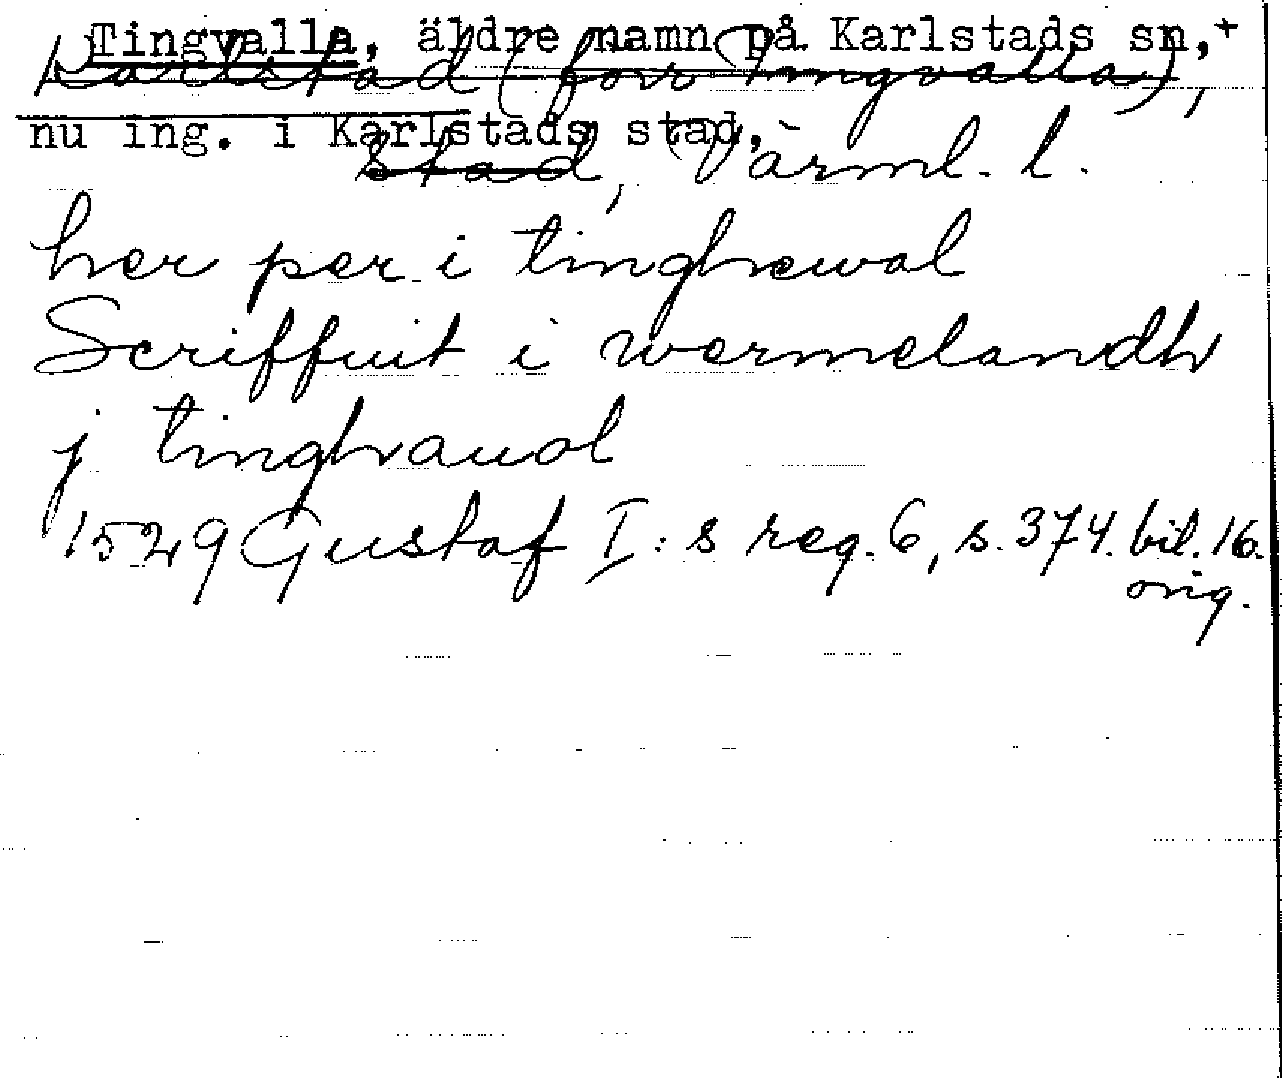 Tingvalla, äldre namn på Karlstads sn,+
Karlstad (förr Tingvalla),
nu ing. i Karlstads stad,
stad, Värml. l.
her per i tinghrewal
Scriffuit i wermelandh
j tinghvauol
1529 Gustaf I:s reg. 6, s. 374. bil. 16.
orig.